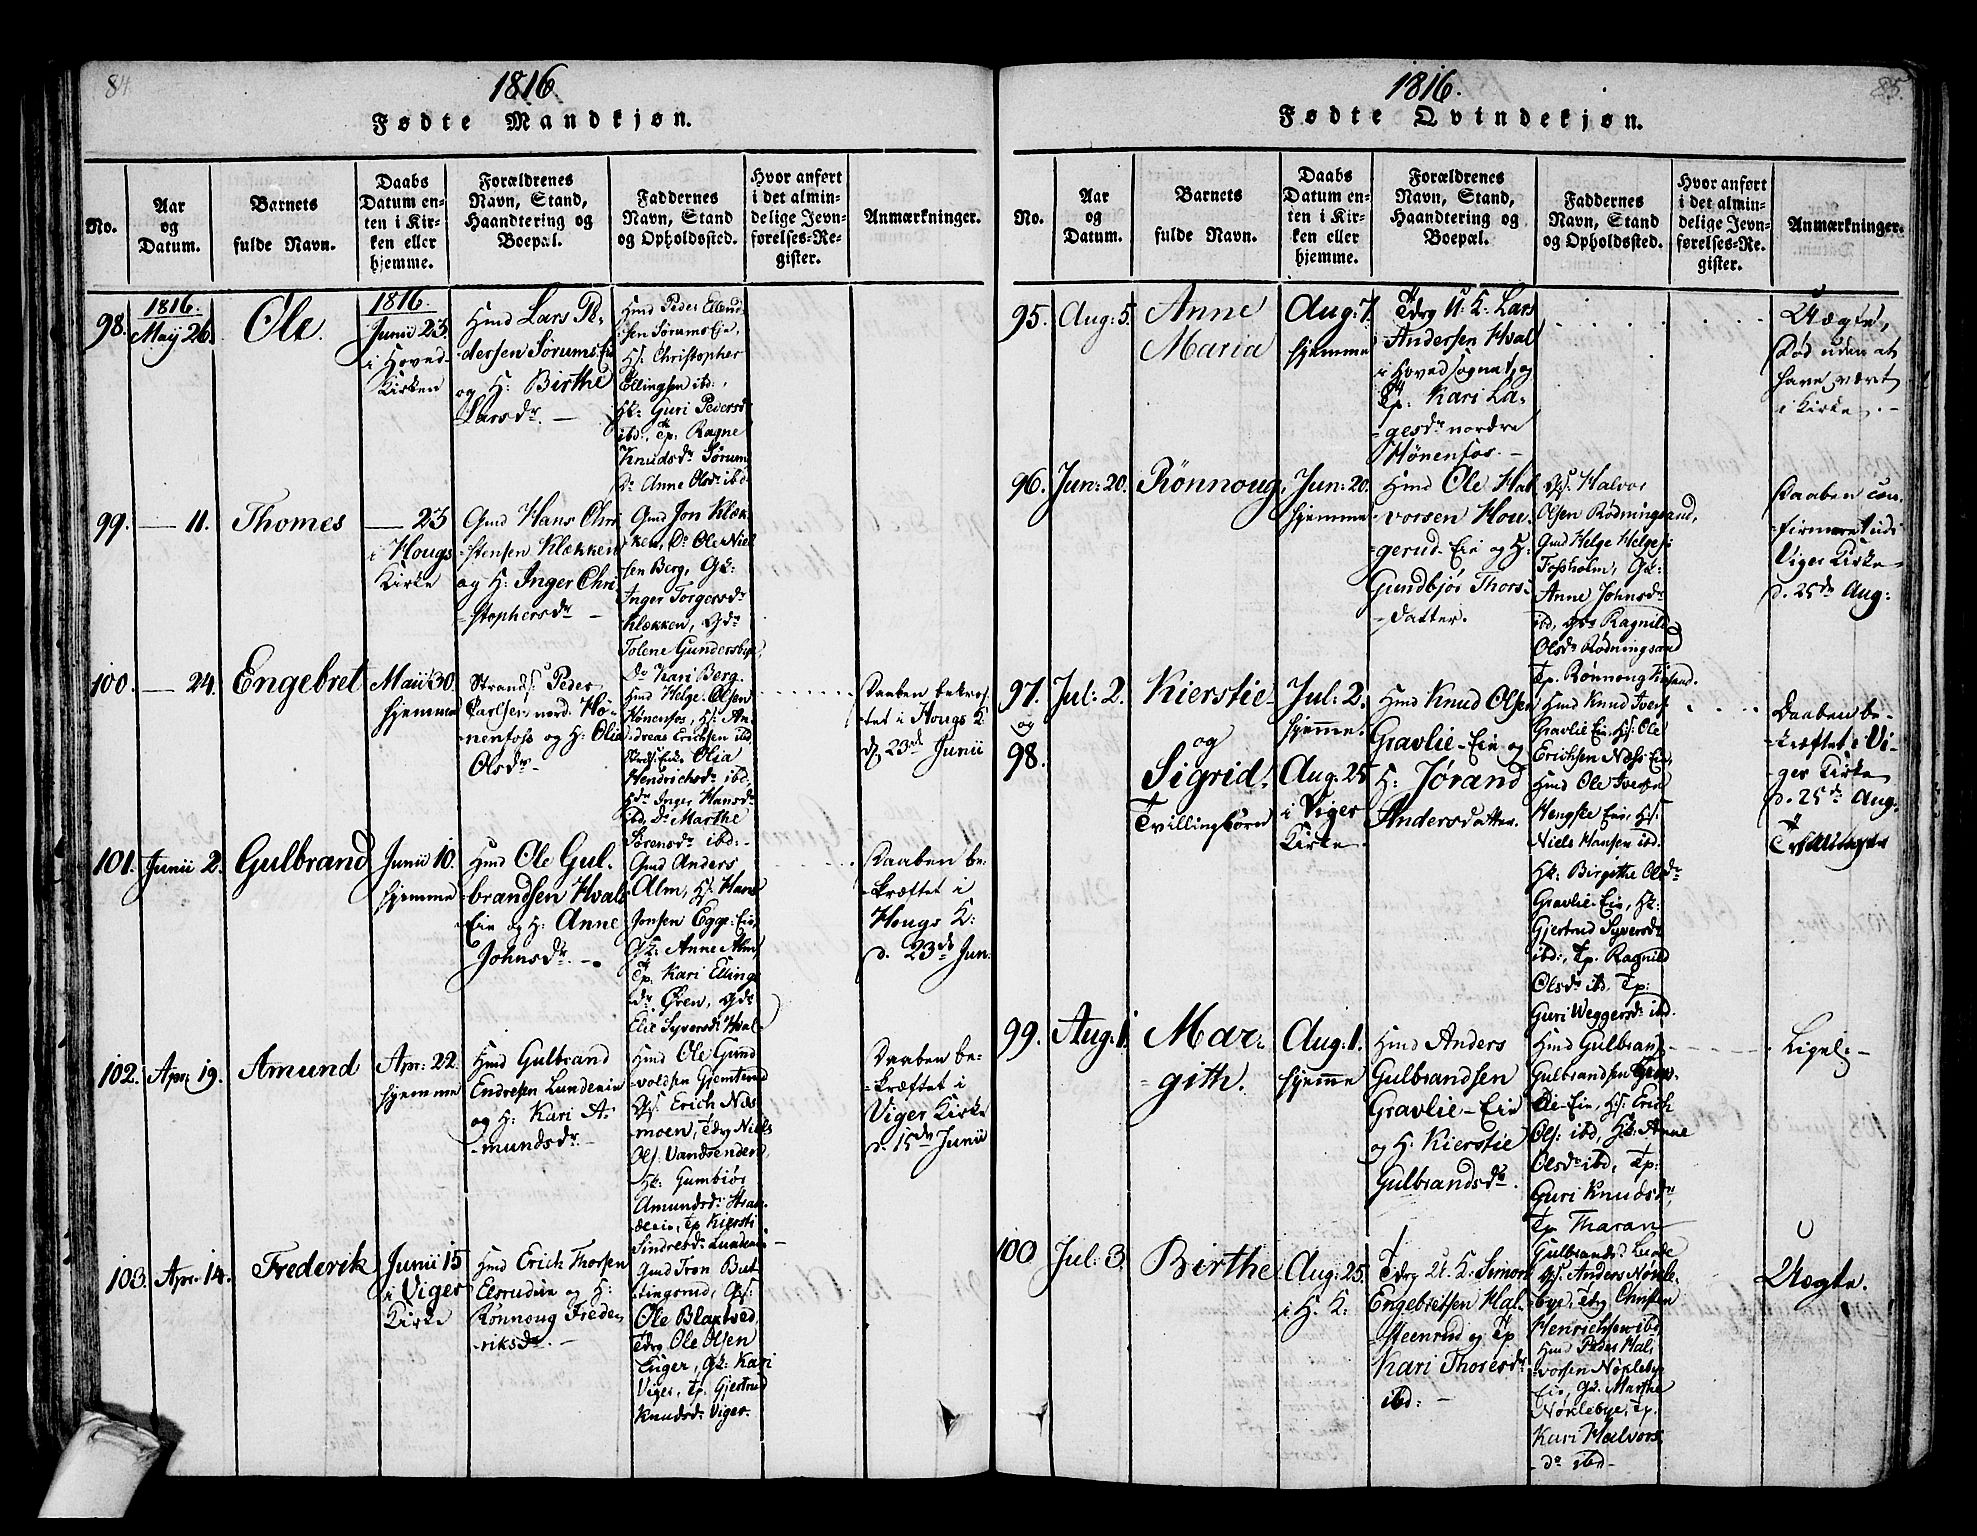 84
1816.
Fødte Mandkjøn.
No.
Aar
og
Datum.
Barnets
fulde Navn.
Daabs
Datum en-
ten i Kir-
ken eller
hjemme.
Forældrenes
Navn, Stand,
Haandtering og
Boepæl.
Faddernes
Navn, Stand
og Opholdssted.
Hvor anført
i det almin-
delige Jevn-
førelses-Re-
gister.
Anmærkninger.
98.
1816.
Maÿ 26.
Ole
1816.
Junii 23
i Hoved-
Kirken
Hmd Lars Pe-
dersen Sørums Eie
og H: Birthe
Larsdr. —
Hmd Peder Ellend
sen Sørums Eie,
Hs: Christopher
Ellingsen ibd.,
Hk: Guri Pedersd
ibd., Tp: Ragne
Knudsdr Sørum
Dr Anne Olsdr ibd
99.
— 11.
Thomes
— 23
i Hougs
Kirke
Gmd Hans Chri
-stensen Klækken
og H: Inger Chri
-stophersdr —
Gmd Jon Klæk
ken, Do Ole Niel
sen Berg, Gk:
Inger Torgersdr
Klækken, Gdr
Tolene Gundersbye,
Do Kari Berg.
100.
— 24.
Engebret
Maii 30
hjemme
Strands: Peder
Carlsen nord. Hø-
nenfoss og H: Olia
Olsdr —
Hmd Helge Olsen
Hønenfos, Hs: An
dreas Erichsen ibd.
Olia
Hendrichsdr ibd.
Inger Hansdr
ibd, Do Marthe
Sørensdr ibd: -
Daaben bekræf
tet i Hougs K
d. 23de Junii
101.
Junii 2.
Gulbrand
Junii 10.
hjemme
Hmd Ole Gul.
brandsen Hvals
Eie og H: Anne
Johnsdr. —
Gmd Anders
Alm, Hs: Hans
Jonsen Egge Eie,
Gk: Anne Alm,
Tp: Kari Ellings
dr Øren, Gdr
Elie Syversdr Hval-
Daaben be-
kræftet i
Hougs K:
d. 23de Jun:
102.
Apr: 19.
Amund
Apr: 22.
hjemme
Hmd Gulbrand
Endresen Lundeeie
og H: Kari A-
mundsdr —
Hmd Ole Gund
voldsen Gjemtlund
Gs: Erich Næs
moen, Tdrg Niels
Ols: Vandsenden,
Hk: Gumbiør
Amundsdr Hval-
Tp Kiersti
Sindresdr Lundeeie —
Daaben be-
kræftet i
Viger Kirke
d. 15de Junii
103.
Apr: 14.
Frederik
Junii 15
i Viger
Kirke
Hmd Erich Thorsen
Elsrudeie og H:
Rønnoug Frede-
riksdr —
Gmd Tron But
tingsrud, Gs:
Ole Blaxtved,
Tdrg Ole Olsen
Enger, Gk: Kari
Viger, Tp. Gjertrud
Knudsdr Viger.
85.
1816.
Fødte Qvindekjøn.
No.
Aar
og
Datum.
Barnets
fulde Navn.
Daabs
Datum en-
ten i Kir-
ken eller
hjemme.
Forældrenes
Navn, Stand,
Haandtering og
Boepæl.
Faddernes
Navn, Stand
og Opholdssted.
Hvor anført
i det almin-
delige Jevn-
førelses-Re-
gister.
Anmærkninger.
95.
Aug: 5.
Anne
Maria
Aug: 7.
hjemme
Tdrg U: K: Lars
Andersen Hval
i Hoved sognet, og
Tp: Kari La-
gesdr nordre
Hønenfos. —
Uægte,
Død uden at
have vært
i Kirke. —
96.
Jun: 20.
Rønnoug
Jun: 20.
hjemme
Hmd Ole Hal
vorsen Hou-
gerud-Eie og H:
Gundbjør Thors-
-datter.
Gs: Halvor
Olsen Rødningsand,
Gmd Helge Helges:
Fosholm, Gk:
Anne Johnsdr
ibd, Gdr Ragnild
Olsdr Rødningsand
Tp. Rønnoug
Daaben con-
firmeret udi
Viger Kirke
d. 25de Aug:
97.
og
98.
Jul: 2.
Kierstie
og
Sigrid.
Tvillingbørn
Jul: 2.
hjemme.
Aug: 25
i Viger
Kirke.
Hmd Knud Olsen
Gravlie-Eie og
H: Jørand
Andersdatter.
Hmd Knud Ivers
Gravlie Eie, Hs: Ole
Erichsen Næss Eie,
Hmd Ole Iversen
Hengsle Eie, Hs:
Niels Hansen ibd.
Hk: Birgithe Olsdr
Gravlie-Eie, Hk:
Gjertrud Syversdr
ibd:, Tp. Ragnild
Olsdr ibd, Tp:
Guri Weggersdr ibd.
Daaben be-
kræftet i Vi-
ger Kirke
d. 25de Aug.
99.
Aug: 1.
Mar-
gith.
Aug: 1.
hjemme
Hmd Anders
Gulbrandsen
Gravlie-Eie
og H: Kierstie
Gulbrandsdr.
Hmd Gulbrand
Gulbrandsen Grav-
lie-Eie, Hs: Erich
Ols: ibd, Hk: Anne
Olsdr ibd, Tp:
Guri Knudsdr,
Tp Tharan
Gulbrandsd
Ligel: —
100
Jul: 3.
Birthe
Aug: 25.
i H. K.
Tdrg U. K. Simon
Engebretsen Hal-
steenrud og Tp
Kari Thoresdr
ibd: —
Gs: Anders Nøkle-
bye, Tdrg Christen
Henrichsen ibd,
Hmd Peder Hal-
vorsen Nøklebye
Eie, Gk. Marthe
Nøklebye, Tp.
Kari Halvors
dr ibd —
Uægte.